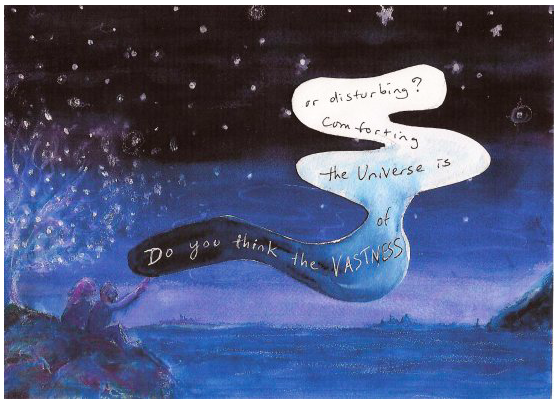 Do you think the VASTNESS
of
the Universe is
Comforting
or disturbing?